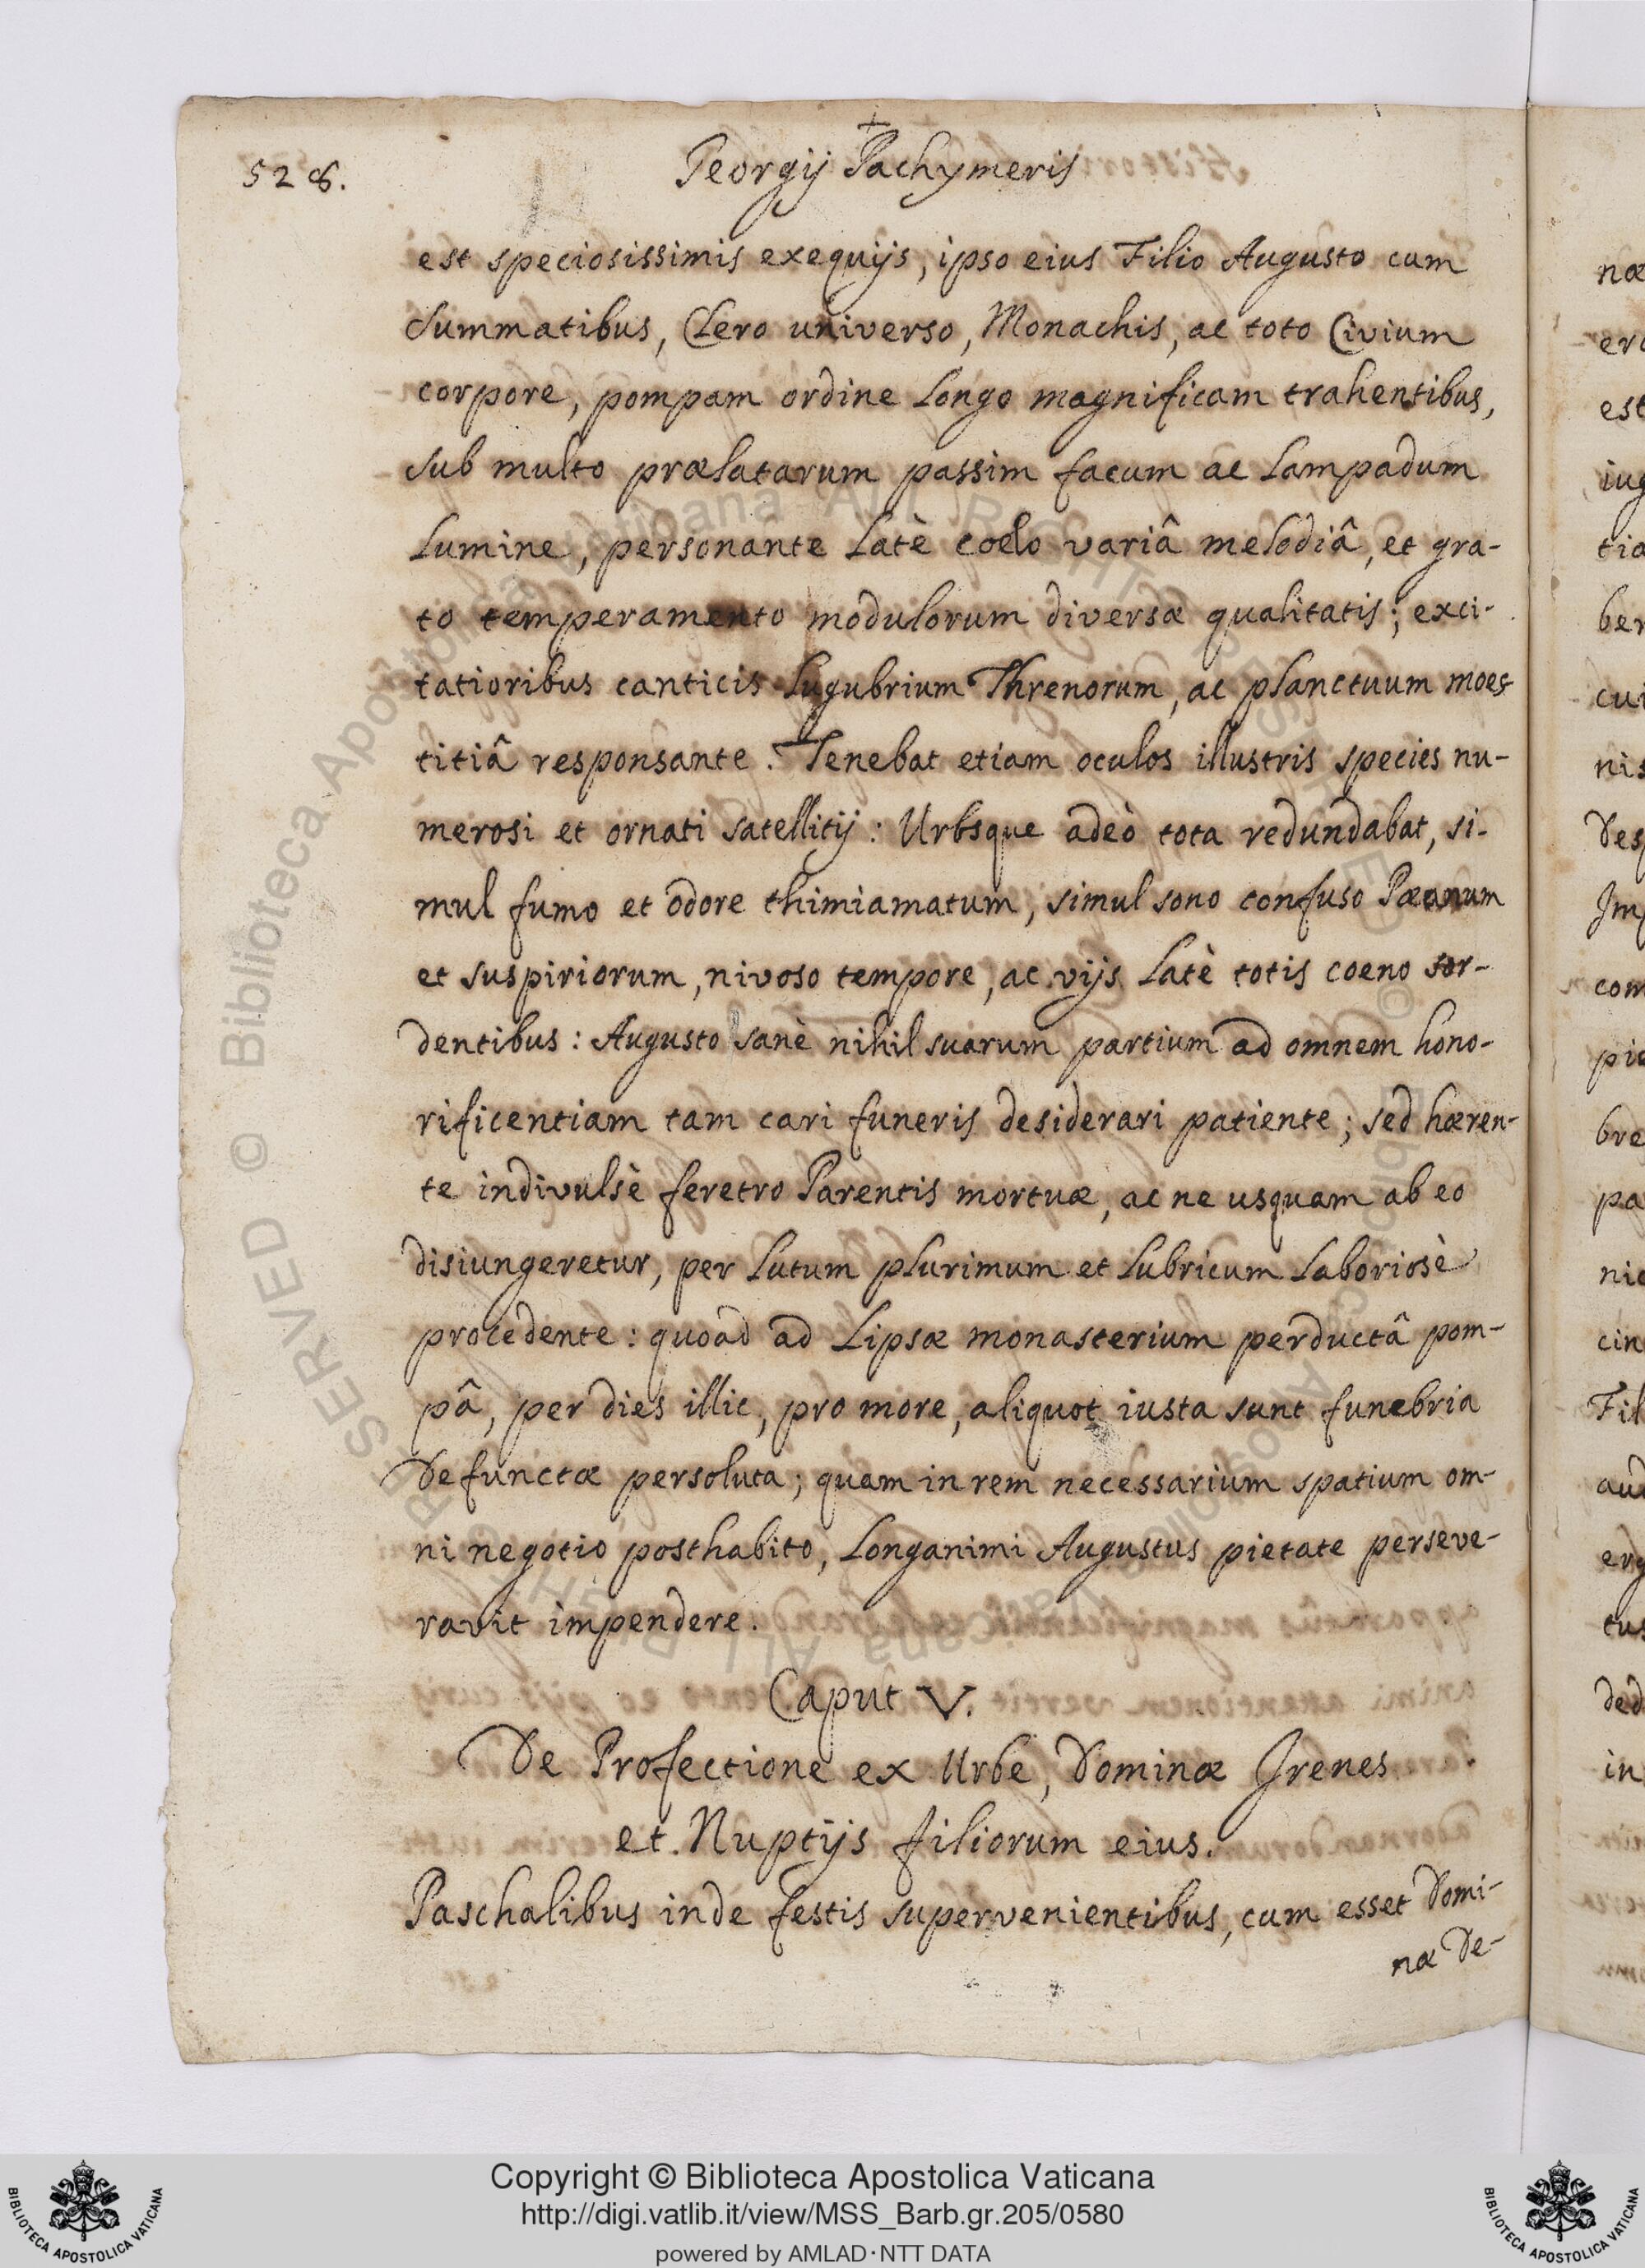 528.
Georgij Pachymeris
est speciosissimis exequijs, ipso eius Filio Augusto cum
summatibus, Clero universo, Monachis, ac toto Civium
corpore, pompam ordine longo magnificam trahentibus,
sub multo prælatarum passim facum ac lampadum
lumine, personante latè coelo variâ melodiâ, et gra-
to temperamento modulorum diversæ qualitatis; exci-
tatioribus canticis lugubrium Threnorum, ac planctuum moes-
titiâ responsante. Tenebat etiam oculos illustris species nu-
merosi et ornati satellitij: Urbsque adeò tota redundabat, si-
mul fumo et odore thimiamatum, simul sono confuso Pæanum
et suspiriorum, nivoso tempore, ac vijs latè totis coeno sor-
dentibus: Augusto sanè nihil suarum partium ad omnem hono-
rificentiam tam cari funeris desiderari patiente; sed hæren-
te indivulsè feretro Parentis mortuæ, ac ne usquam ab eo
disiungeretur, per lutum plurimum et lubricum laboriosè
procedente: quoad ad Lipsæ monasterium perductâ pom-
pâ, per dies illic, pro more, aliquot iusta sunt funebria
Defunctæ persoluta; quam in rem necessarium spatium om-
ni negotio posthabito, longanimi Augustus pietate perseve-
ravit impendere.
Caput V.
De Profectione ex Urbe, Dominæ Irenes
et Nuptijs filiorum eius.
Paschalibus inde festis supervenientibus, cum esset Domi-
næ De-
Copyright © Biblioteca Apostolica Vaticana
http://digi.vatlib.it/view/MSS_Barb.gr.205/0580
powered by AMLAD·NTT DATA
BIBLIOTECA APOSTOLICA VATICANA
BIBLIOTECA APOSTOLICA VATICANA